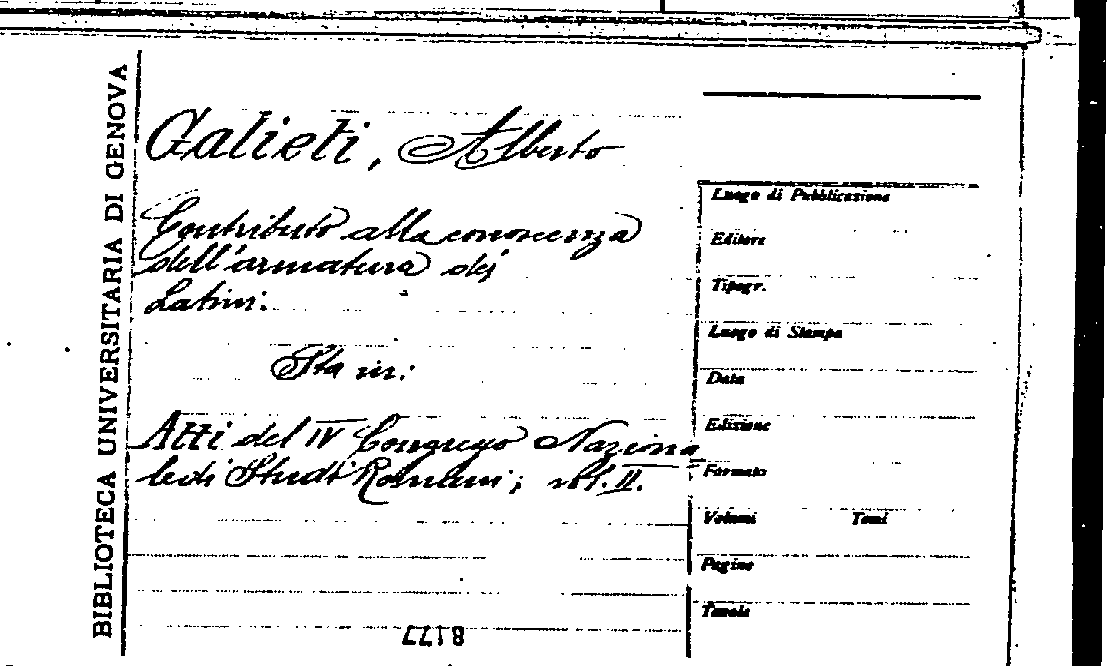 BIBLIOTECA UNIVERSITARIA DI GENOVA
Galieti, Alberto
Contributo alla conoscenza
dell'armatura dei
Latini.
Sta in:
Atti del IV Congresso Naziona
le di Studi Romani; vol. II.
Luogo di Pubblicazione
Editore
Tipogr.
Luogo di Stampa
Data
Edizione
Formato
Volumi Tomi
Pagine
Tavole
8177